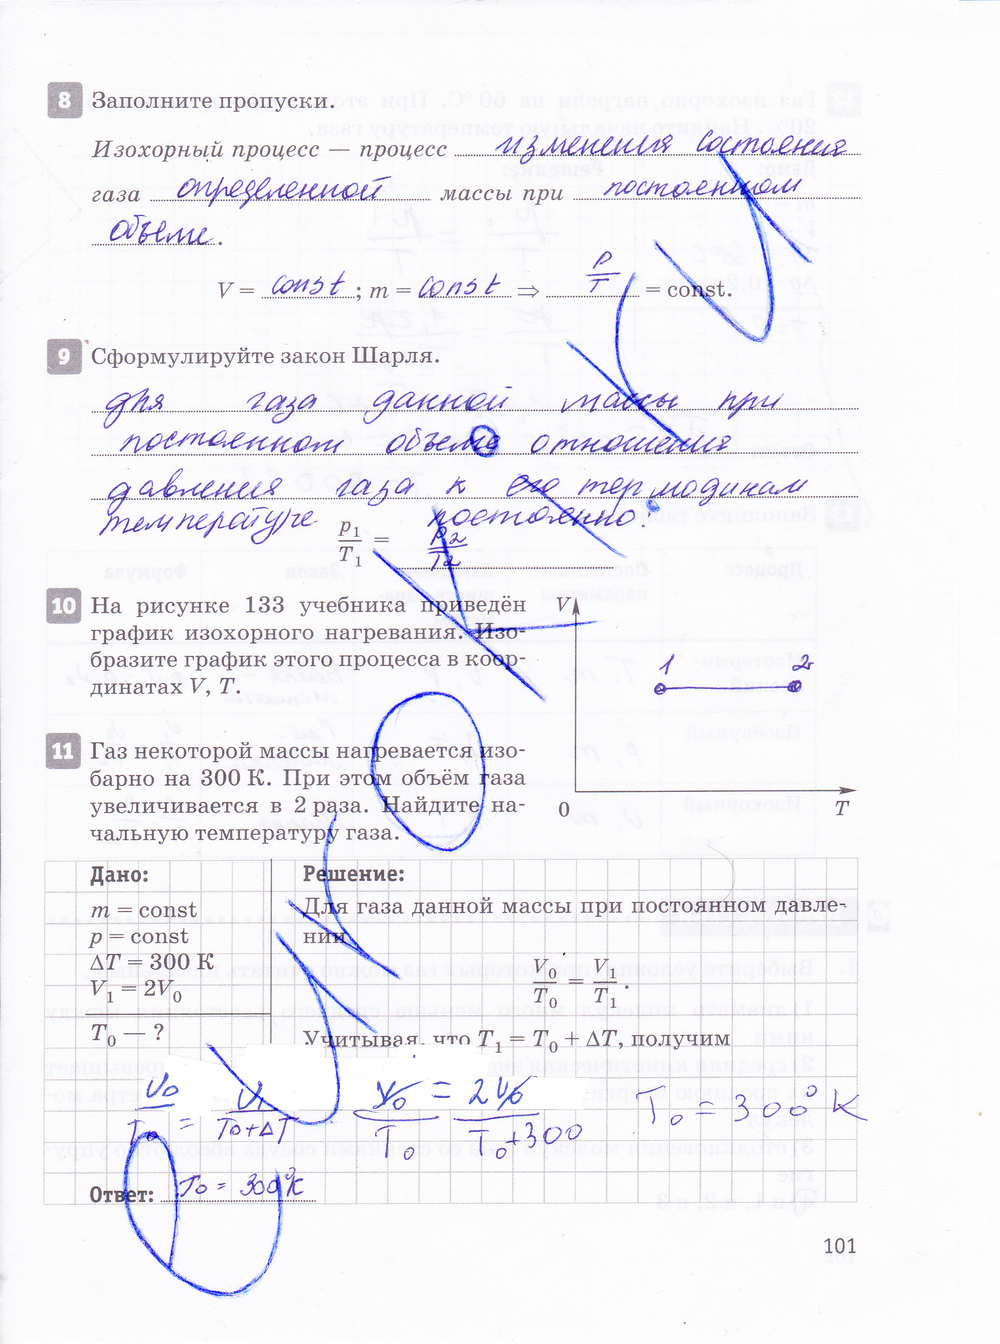 8 Заполните пропуски.
Изохорный процесс — процесс изменения состояния
газа определенной массы при постоянном
объеме.
V = const; m = const ⇒ p/T = const.
9 Сформулируйте закон Шарля.
для газа данной массы при
постоянном объеме отношения
давления газа к его термодинам
температуре постоянно:
p₁/T₁ = p₂/T₂
10 На рисунке 133 учебника приведён
график изохорного нагревания. Изо-
бразите график этого процесса в коор-
динатах V, T.
V
1 2
0 T
11 Газ некоторой массы нагревается изо-
барно на 300 К. При этом объём газа
увеличивается в 2 раза. Найдите на-
чальную температуру газа.
Дано:
m = const
p = const
ΔT = 300 К
V₁ = 2V₀
T₀ — ?
Решение:
Для газа данной массы при постоянном давле-
нии
V₀/T₀ = V₁/T₁.
Учитывая, что T₁ = T₀ + ΔT, получим
V₀/T₀ = V₁/T₀+ΔT V₀/T₀ = 2V₀/T₀+300 T₀ = 300° К
Ответ: T₀ = 300°К
101